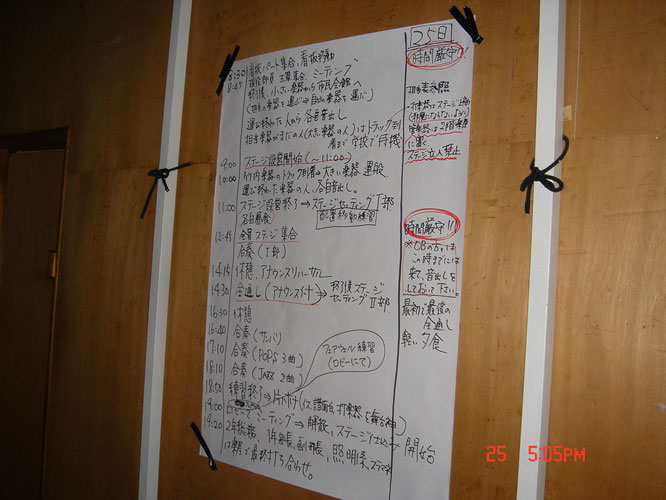 25日
8:30 看板パート集合、看板移動
8:45 現役部員 主幕集合、ミーティング
終了後、小さい楽器から市民会館へ
(自分の楽器を運ぶ⇒自由楽器を運ぶ)
運び終わった人から各自音出し
担当楽器がまだの人(大きい楽器の人)はトラック到
着まで学校で待機
9:00 ステージ設営開始(～11:00)
10:00 4t内楽器のトラック到着⇒大きい楽器運搬
運び終わった楽器の人、各自音出し。
11:00 ステージ設営終了⇒ステージセッティングⅠ部
各自昼食
配置移動練習
12:45 全員ステージ集合
合奏(Ⅰ部)
14:15 休憩、アナウンスリハーサル
14:30 全通し(アナウンス付き)⇒終了後ステージ
セッティングⅡ部
16:30 休憩
16:40 合奏(サンバ)
17:10 合奏(POPS 3曲)
18:10 合奏(JAZZ 2曲)
フェアウェル練習
(ロビーにて)
18:50 練習終了⇒片付け(イス、譜面台、打楽器を舞台袖)
19:00 ロビーでミーティング⇒解散、ステージ仕込み開始
19:20 2年総務、1年部長、副部長、照明係、ステマネ
は楽屋で最終打ち合わせ。
時間厳守!!
担当表参照
・打楽器はステージ上
(邪魔にならないように)
管楽器は2階楽屋
に置く
ステージ立入禁止
時間厳守!!
※OBの方々は
この時までには
来て、音出しを
しておいて下さい。
最初で最後の
全通し
軽い夕食
25 5:05PM